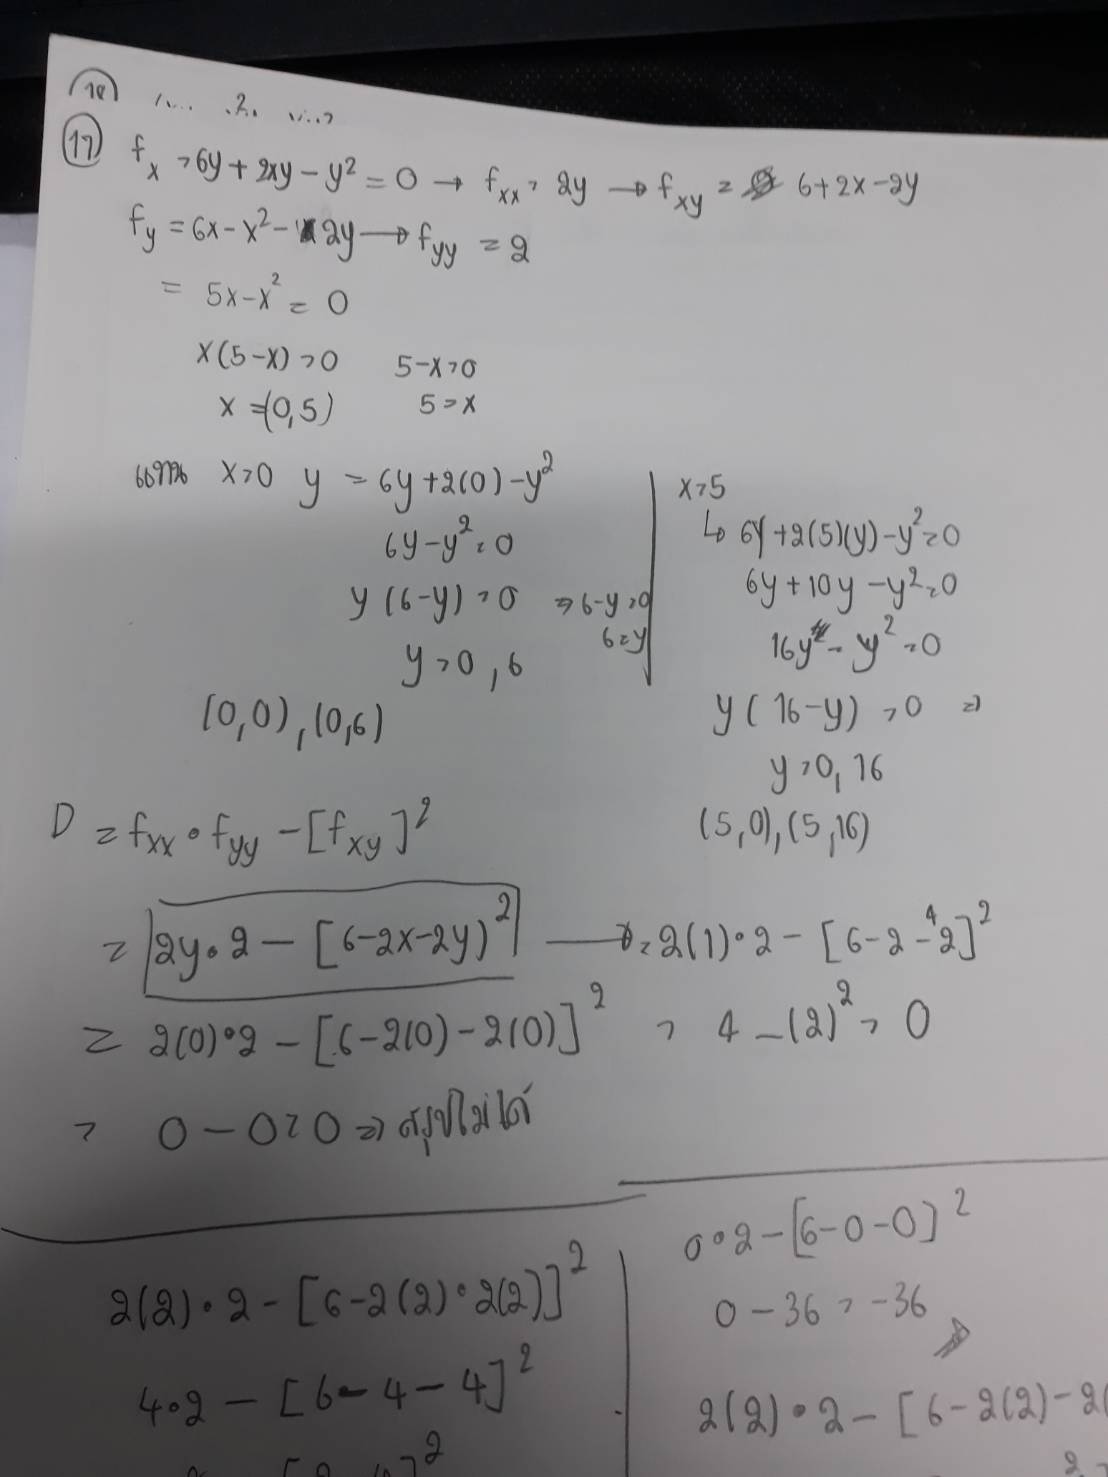 18
17 fx = 6y + 2xy - y² = 0 → fxx = 2y → fxy = 6+2x-2y
fy = 6x - x² - 2y → fyy = 2
= 5x - x² = 0
x(5-x) = 0 5-x=0
x = (0,5) 5=x
แทน x=0 y = 6y+2(0)-y²
6y-y²=0
y(6-y)=0 ⇒ 6-y=0
6=y
y=0,6
(0,0),(0,6)
x=5
↳ 6y+2(5)(y)-y²=0
6y+10y-y²=0
16y - y²=0
y(16-y)=0 ⇒
y=0,16
(5,0),(5,16)
D = fxx • fyy - [fxy]²
= 2y•2 - [6-2x-2y)² → = 2(1)•2 - [6-2-2]²
= 2(0)•2 - [6-2(0)-2(0)]² = 4-(2)² = 0
= 0-0=0 ⇒ สรุปไม่ได้
2(2)•2 - [6-2(2)•2(2)]²
4•2 - [6-4-4]²
0•2-[6-0-0]²
0-36 = -36
2(2)•2 - [6-2(2)-2(